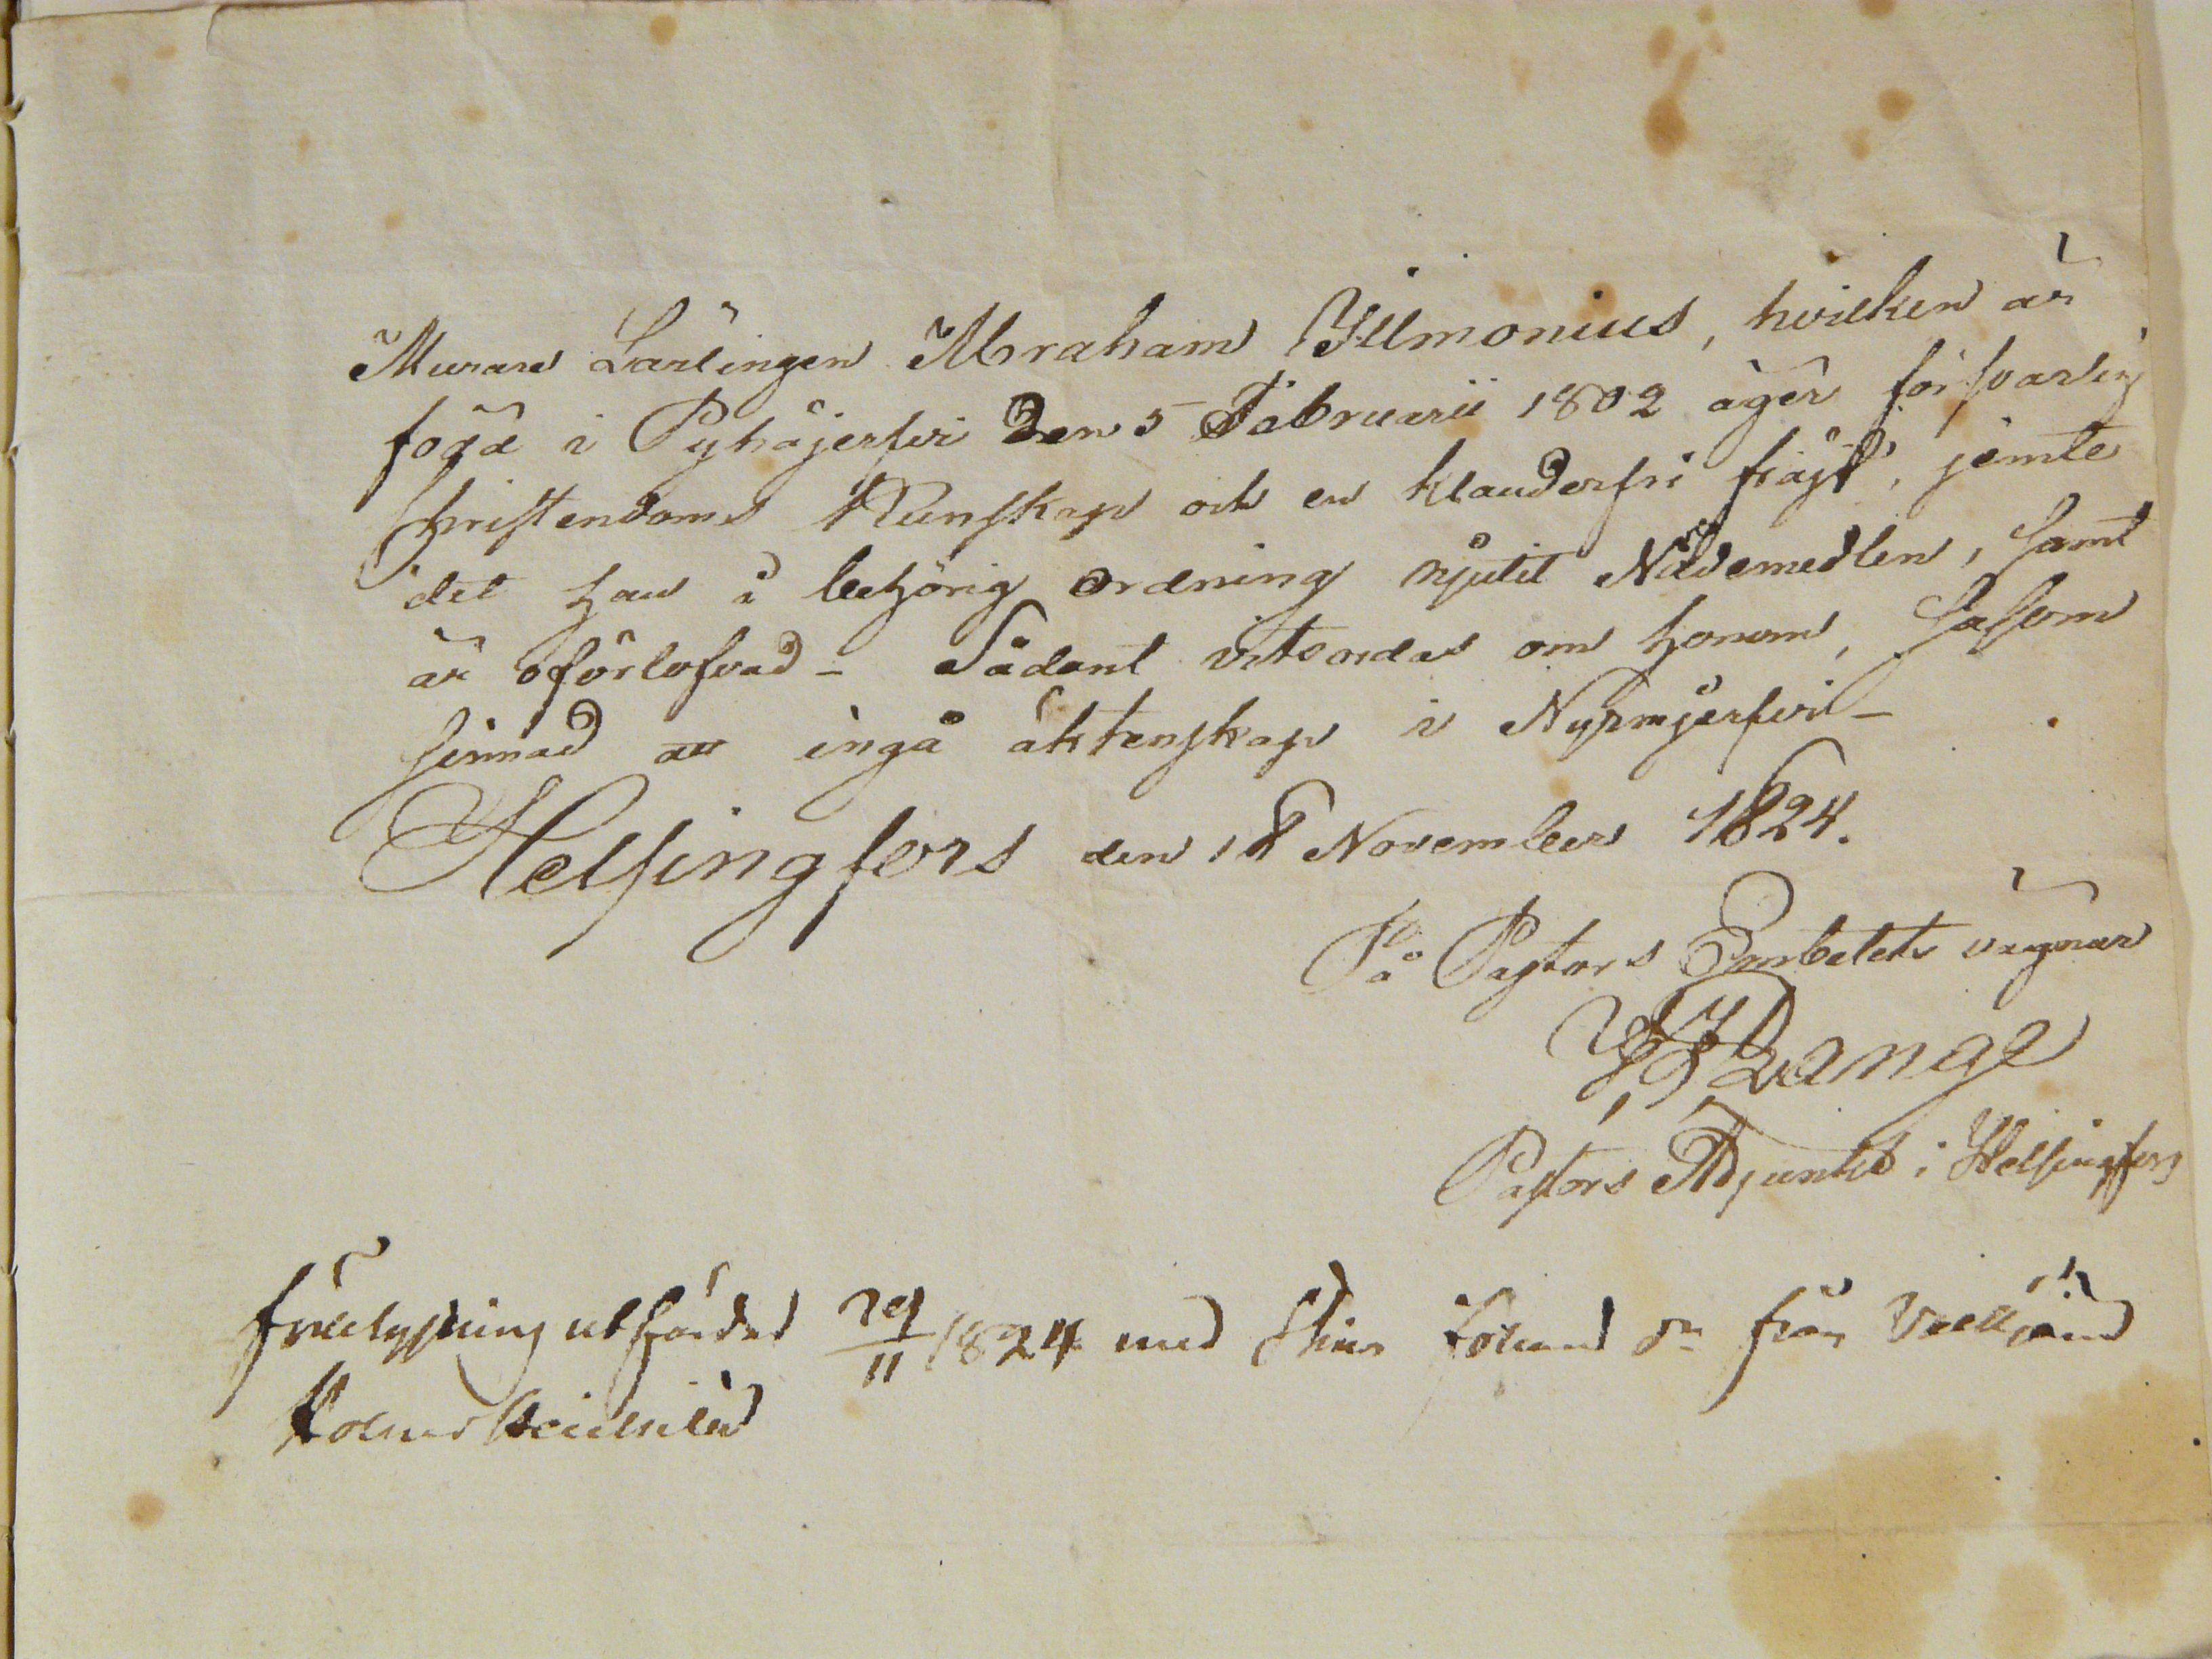 Murare Lärlingen Abraham Yllmonius, hvilken är
född i Pyhäjerfvi den 5 Februarii 1802 äger försvarlig
Christendoms Kunskap och en klanderfri fräjd, jemte
det han i behörig ordning njutit Nådemedlen, samt
är oförlofvad - Sådant vitsordas om honom, såsom
sinnad att ingå äktenskap i Nurmijerfvi -
Helsingfors den 18 November 1824.
På Pastors Embetets vägnar
Pastors Adjunct i Helsingfors
utfärdad 29/11 1824 med Johans dr från